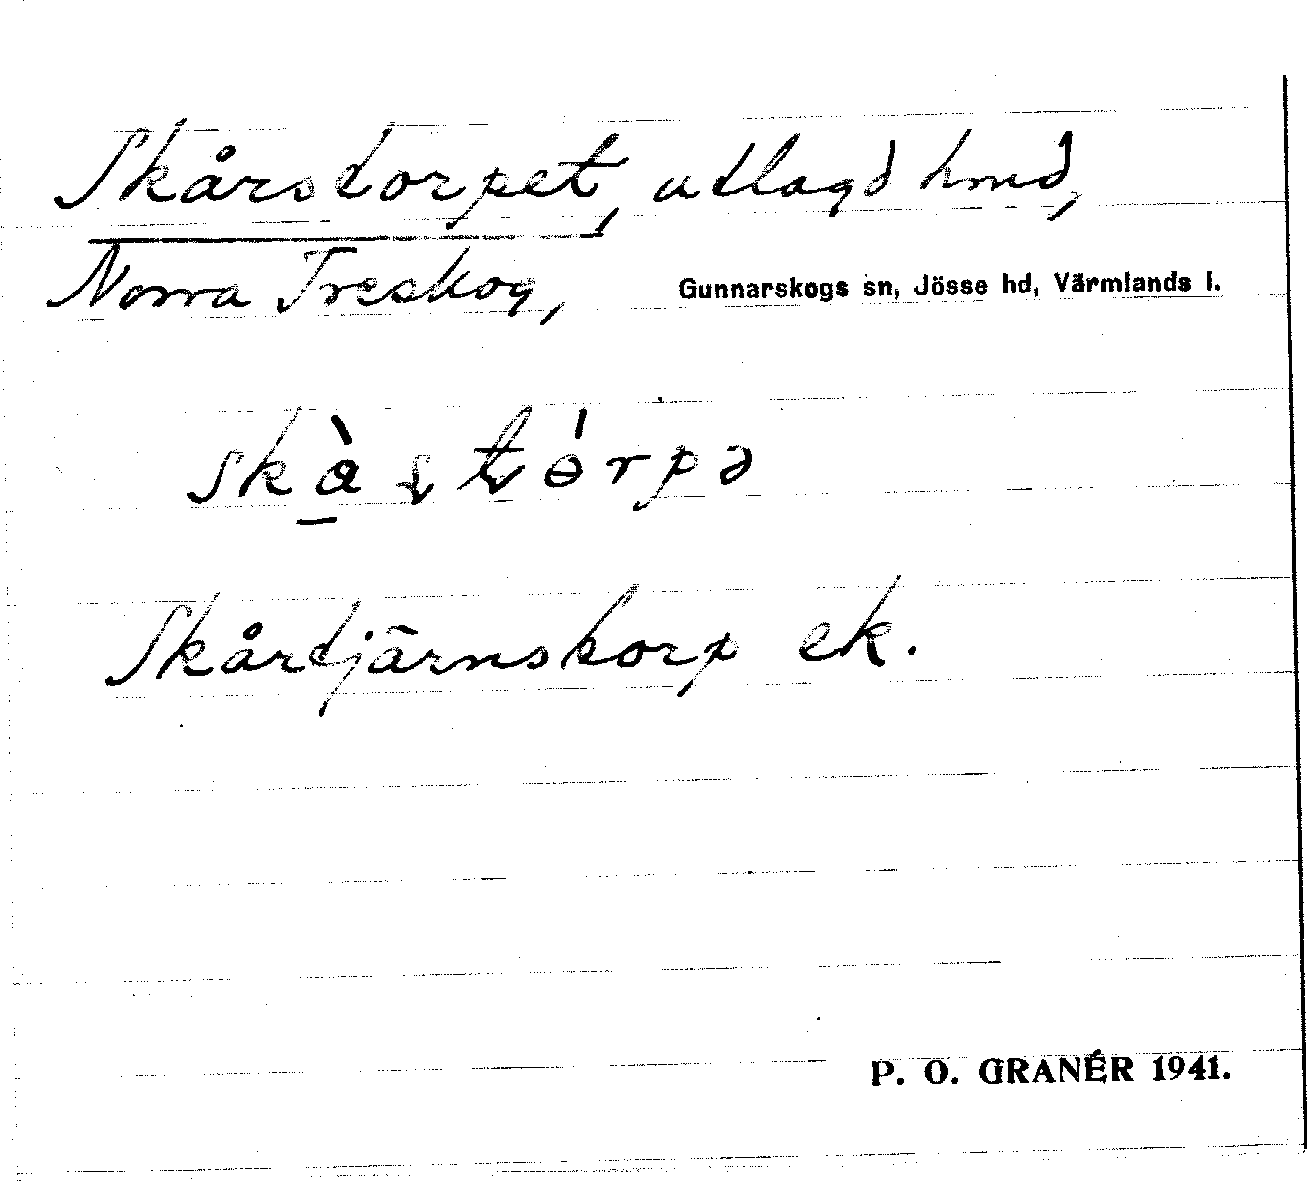 Skårstorpet, utlagd hmd,
Norra Treskog, Gunnarskogs sn, Jösse hd, Värmlands l.
Skårtjärnstorp ek.
P. O. GRANÉR 1941.